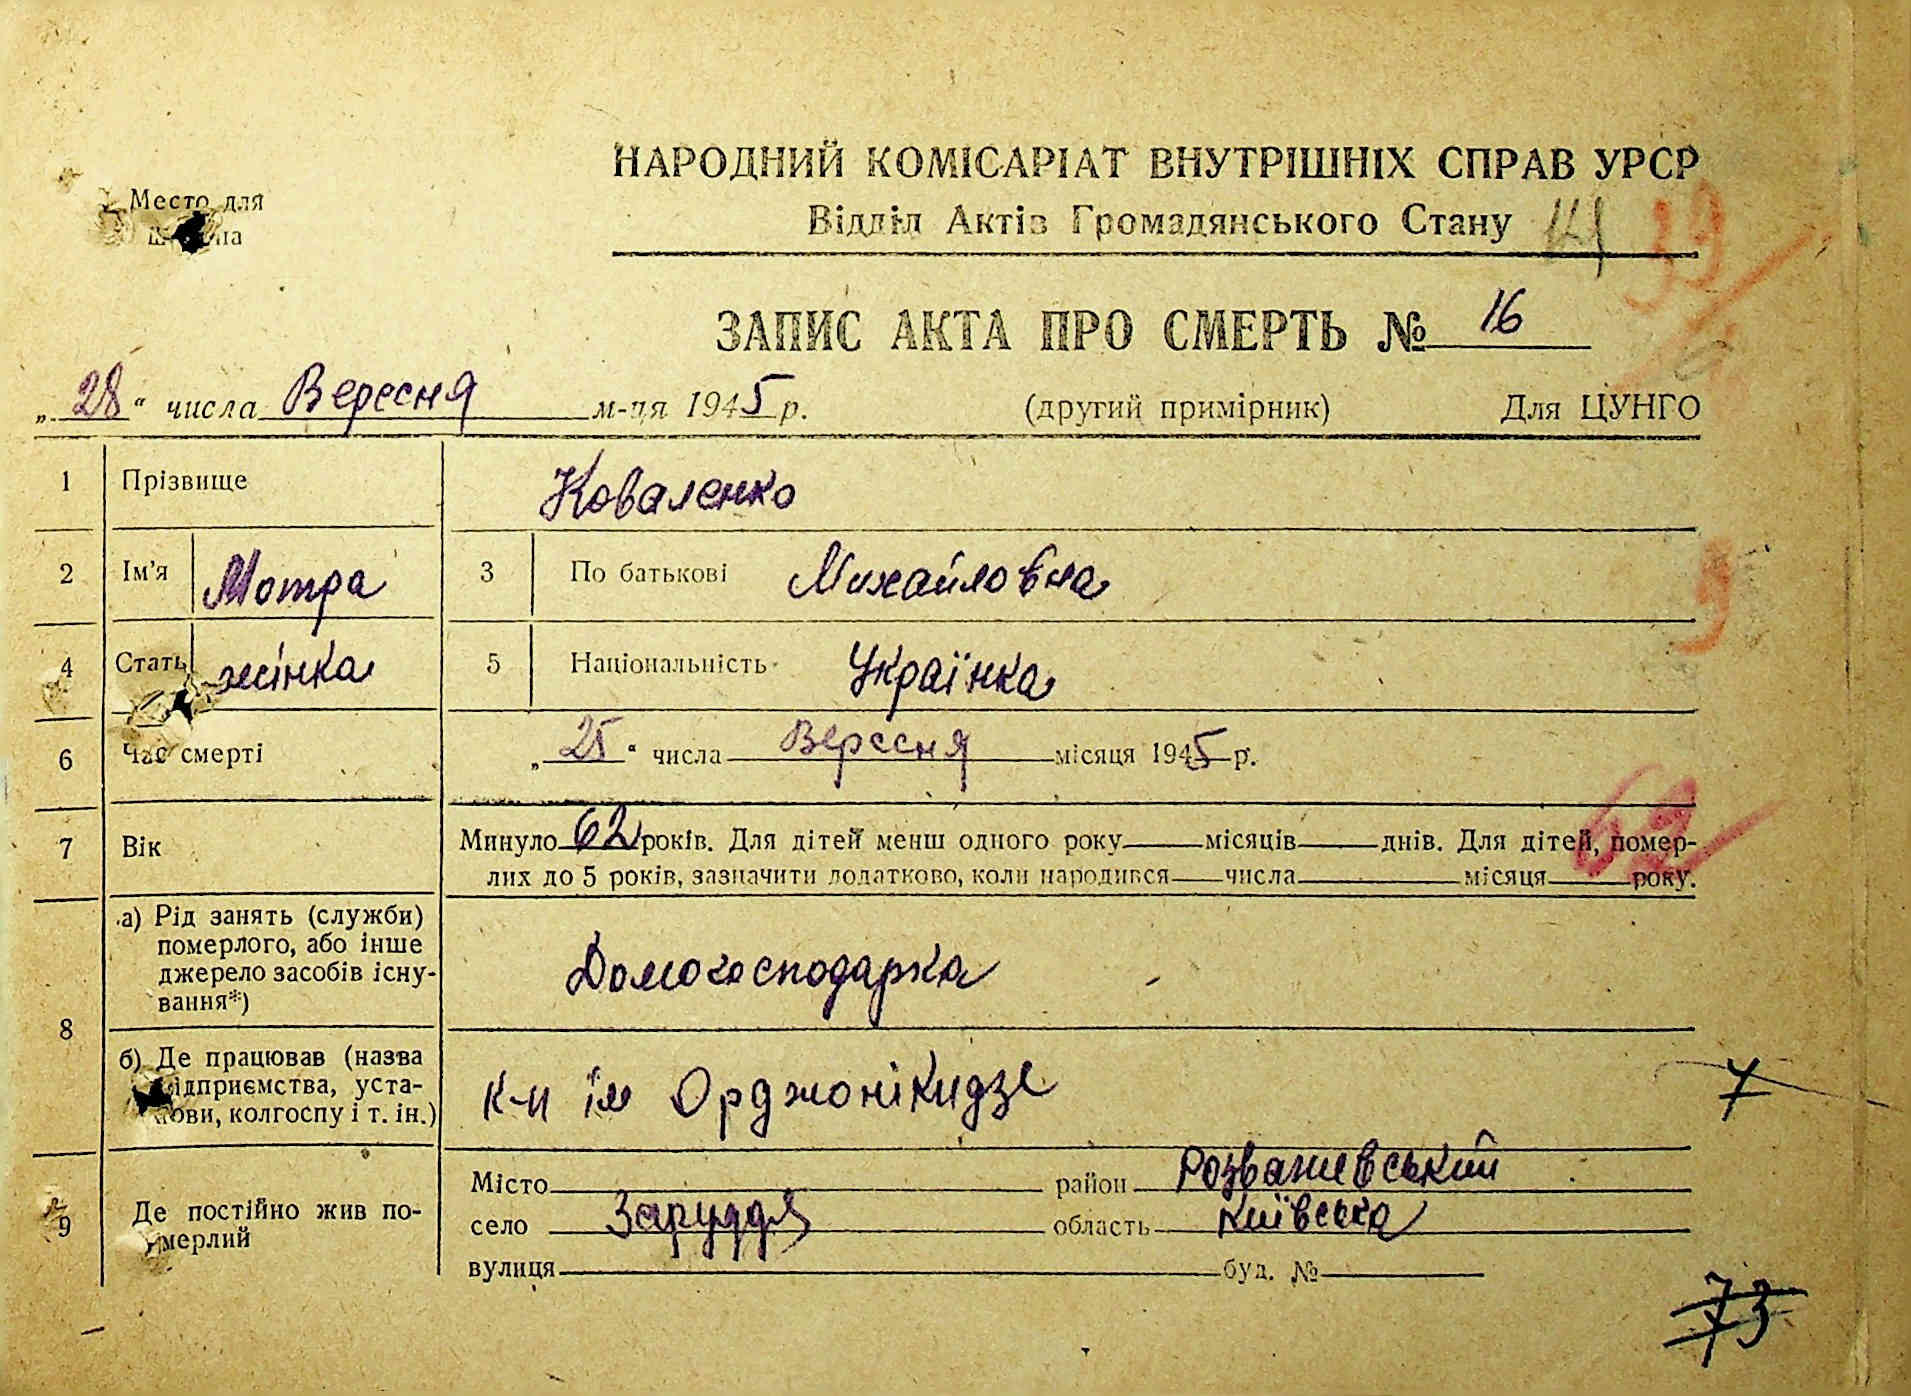 Место для
НАРОДНИЙ КОМІСАРІАТ ВНУТРІШНІХ СПРАВ УРСР
Відділ Актів Громадянського Стану
ЗАПИС АКТА ПРО СМЕРТЬ № 16
„28“ числа Вересня м-ця 1945 р. (другий примірник) Для ЦУНГО
1 Прізвище Коваленко
2 Ім’я Мотра 3 По батькові Михайловна
4 Стать жінка 5 Національність Українка
6 Час смерті „25“ числа Вересня місяця 1945 р.
7 Вік Минуло 62 років. Для дітей менш одного року місяців днів. Для дітей, помер-
лих до 5 років, зазначити додатково, коли народився числа місяця року.
62
8 а) Рід занять (служби)
померлого, або інше
джерело засобів існу-
вання*)
Домогосподарка
б) Де працював (назва
підприємства, уста-
нови, колгоспу і т. ін.)
к-п ім Орджонікидзе
7
9 Де постійно жив по-
мерлий
Місто район Розважевський
село Заруддя область Київська
вулиця буд. №
73